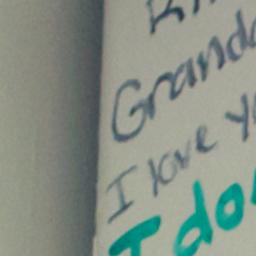 Grand
I love y
I do